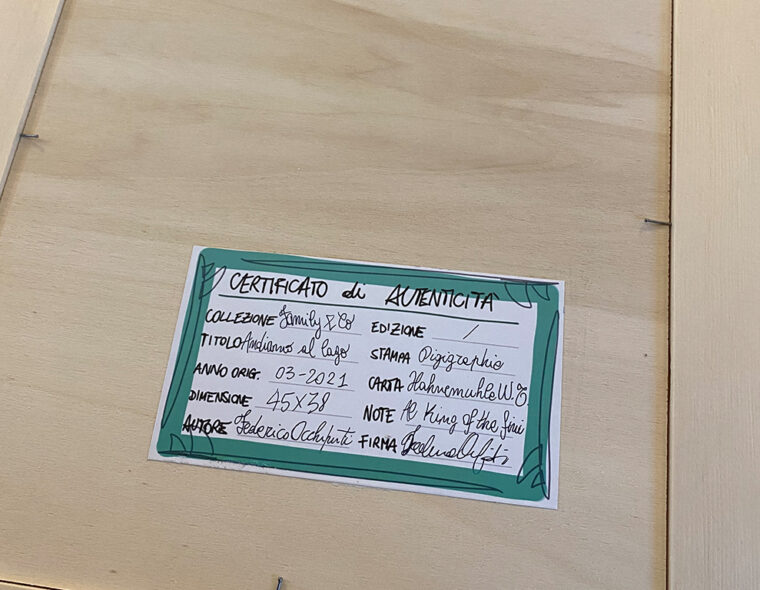 CERTIFICATO di AUTENTICITA
COLLEZIONE Family & Co
TITOLO Andiamo al lago
ANNO ORIG. 03-2021
DIMENSIONE 45X38
AUTORE Federico Occhipinti
EDIZIONE /
STAMPA Digigraphie
CARTA Hahnemuhle W.T.
NOTE Al King of the
FIRMA